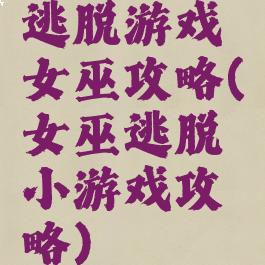 逃脱游戏
女巫攻略(
女巫逃脱
小游戏攻
略)